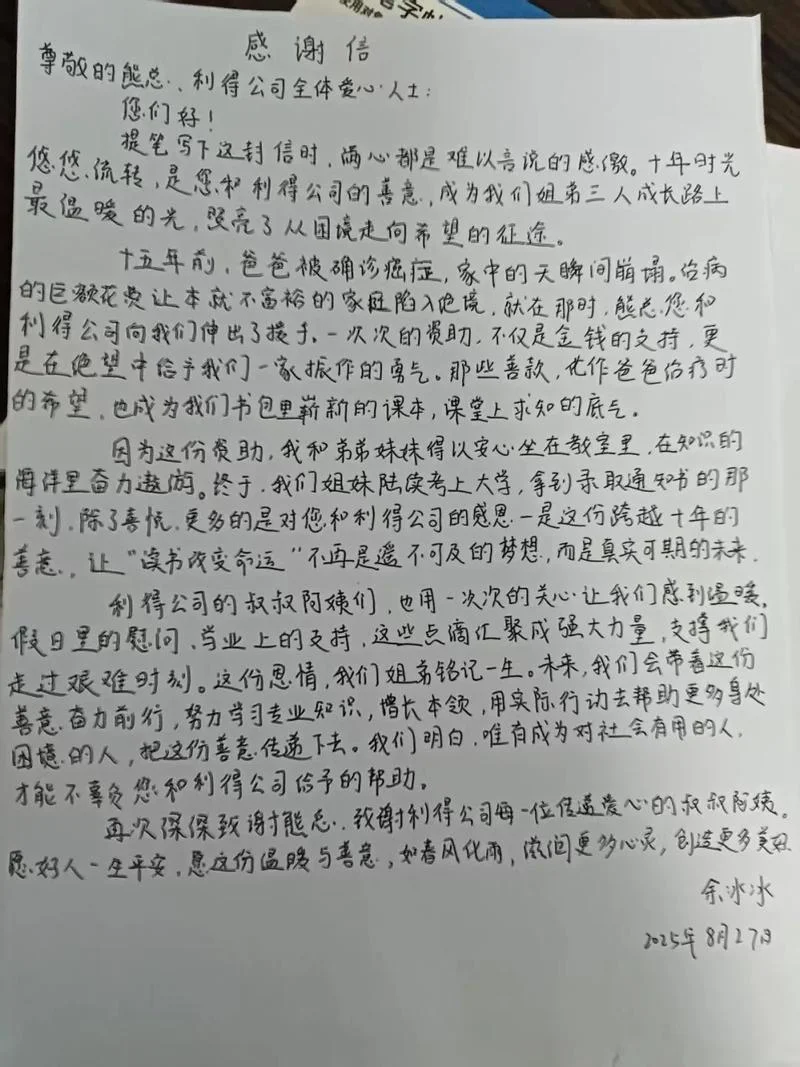 感谢信
尊敬的熊总、利得公司全体爱心人士:
您们好!
提笔写下这封信时,满心都是难以言说的感激。十年时光
悠悠流转,是您和利得公司的善意,成为我们姐弟三人成长路上
最温暖的光,照亮了从困境走向希望的征途。
十五年前,爸爸被确诊癌症,家中的天瞬间崩塌。治病
的巨额花费让本就不富裕的家庭陷入绝境,就在那时,熊总您和
利得公司向我们伸出了援手。一次次的资助,不仅是金钱的支持,更
是在绝望中给予我们一家振作的勇气。那些善款,化作爸爸治疗时
的希望,也成为我们书包里崭新的课本,课堂上求知的底气。
因为这份资助,我和弟弟妹妹得以安心坐在教室里,在知识的
海洋里奋力遨游。终于,我们姐妹陆续考上大学,拿到录取通知书的那
一刻,除了喜悦,更多的是对您和利得公司的感恩—是这份跨越十年的
善意,让“读书改变命运”不再是遥不可及的梦想,而是真实可期的未来.
利得公司的叔叔阿姨们,也用一次次的关心让我们感到温暖,
假日里的慰问,学业上的支持,这些点滴汇聚成强大力量,支撑我们
走过艰难时刻。这份恩情,我们姐弟铭记一生。未来,我们会带着这份
善意奋力前行,努力学习专业知识,增长本领,用实际行动去帮助更多身处
困境的人,把这份善意传递下去。我们明白,唯有成为对社会有用的人,
才能不辜负您和利得公司给予的帮助。
再次深深致谢熊总,致谢利得公司每一位传递爱心的叔叔阿姨。
愿好人一生平安,愿这份温暖与善意,如春风化雨,滋润更多心灵,创造更多美好
余冰冰
2025年8月27日